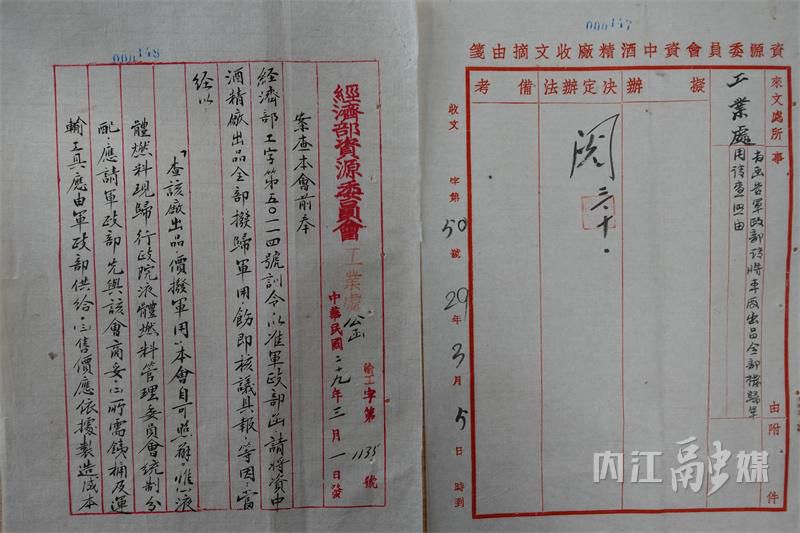 000147
資源委員會資中酒精廠收文摘由箋
來文處所
工業處
事
為函告軍政部請將本廠出品全部撥歸軍
用請查照由
由
附
件
擬
辦
決定辦法
閱 三、十、
備
考
收文 字第50號 29年3月5日 時到
000148
經濟部資源委員會工業處公函
渝工字第1135號
中華民國二十九年三月一日發
案查本會前奉
經濟部工字第五〇二一四號訓令，以准軍政部函，請將資中
酒精廠出品全部撥歸軍用，飭即核議具報，等因，當
經以：
「查該廠出品價撥軍用，本會自可照辦，惟(一)液
體燃料現歸行政院液體燃料管理委員會統制分
配，應請軍政部先與該會商妥，(二)所需鐵桶及運
輸工具應由軍政部供給，(三)售價應依據製造成本
内江融媒